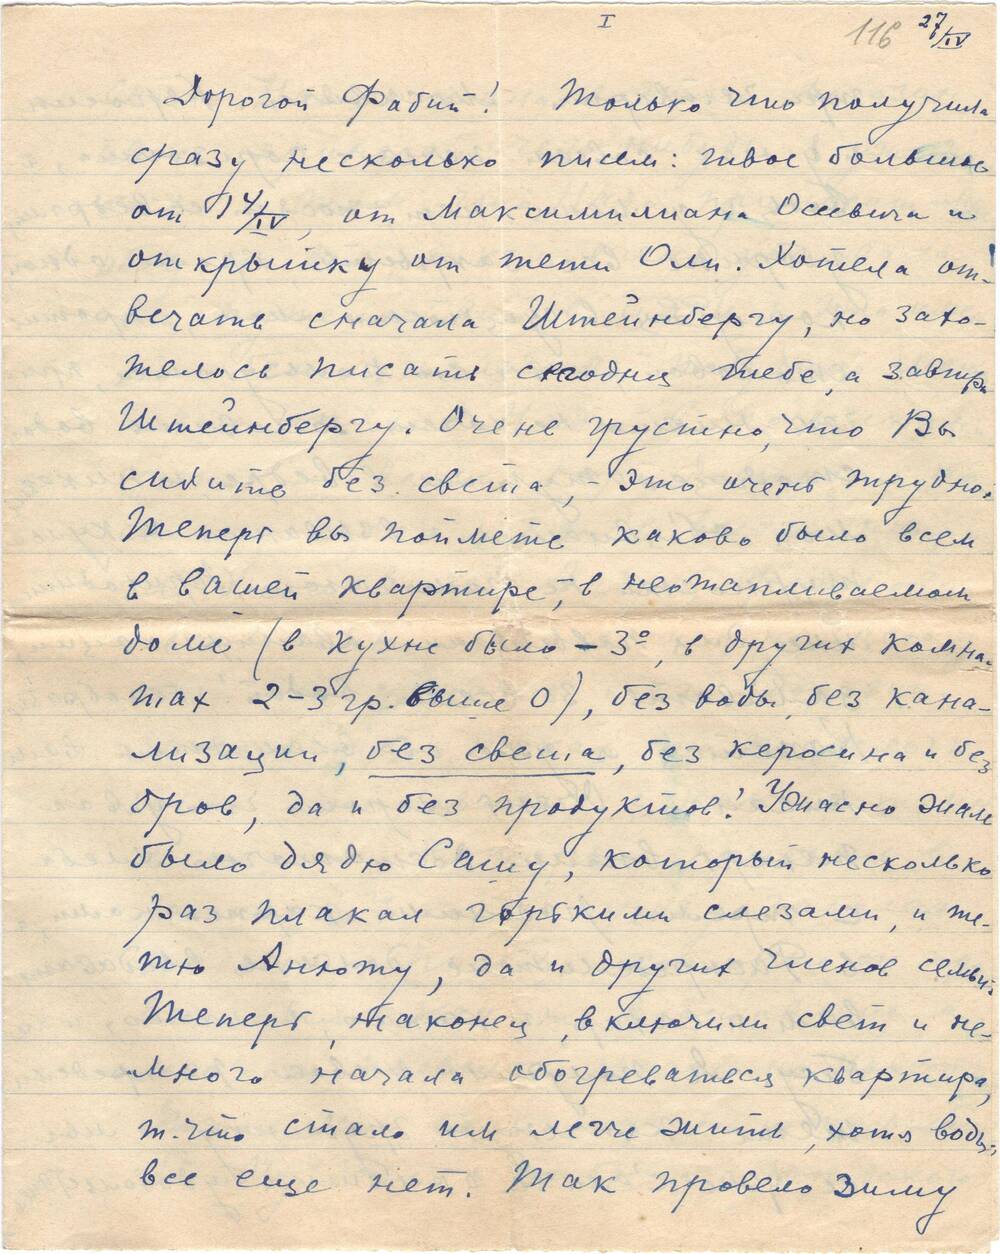 I 116 27/IV
Дорогой Фабий! Только что получила
сразу несколько писем: твое большое
от 14/IV, от Максимилиана Осеевича и
открытку от тети Оли. Хотела от-
вечать сначала Штейнбергу, но захо-
телось писать сегодня тебе, а завтра
Штейнбергу. Очень грустно, что Вы
сидите без света, – это очень трудно.
Теперь вы поймете каково было всем
в вашей квартире, в неотапливаемом
доме (в кухне было – 3°, в других комна-
тах 2–3 гр. выше 0), без воды, без кана-
лизации, без света, без керосина и без
дров, да и без продуктов! Ужасно жаль
было дядю Сашу, который несколько
раз плакал горькими слезами, и те-
тю Анюту, да и других членов семьи.
Теперь, наконец, включили свет и не-
много начала обогреваться квартира,
т. что стало им легче жить, хотя воды
все еще нет. Так провело зиму